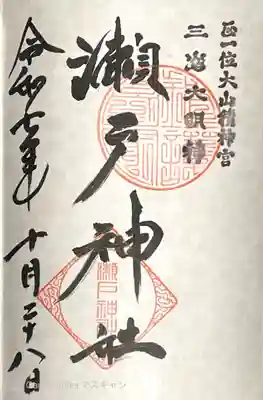 正一位大山積神宮
三嶋大明神
瀬戸神社
瀬戸神社
令和年 十月二十八日
スキャン